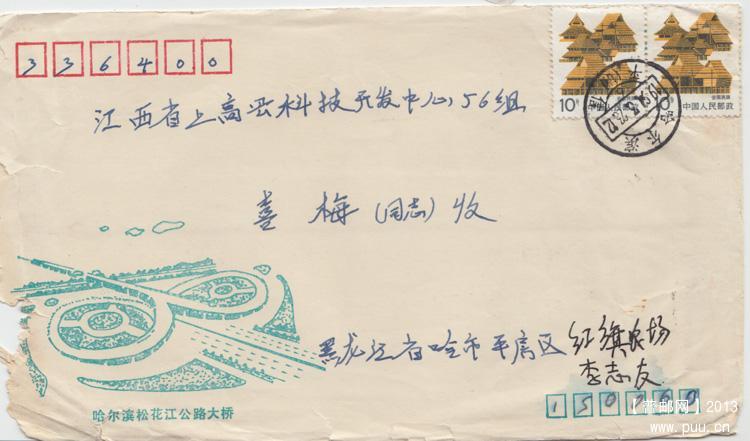 336400
江西省上高县科技开发中心56组
喜 梅(同志)收
黑龙江省哈市平房区红旗农场
李志友
150060
哈尔滨松花江公路大桥
10分 中国人民邮政
中国人民邮政
【普邮网】2013
www.puu.cn